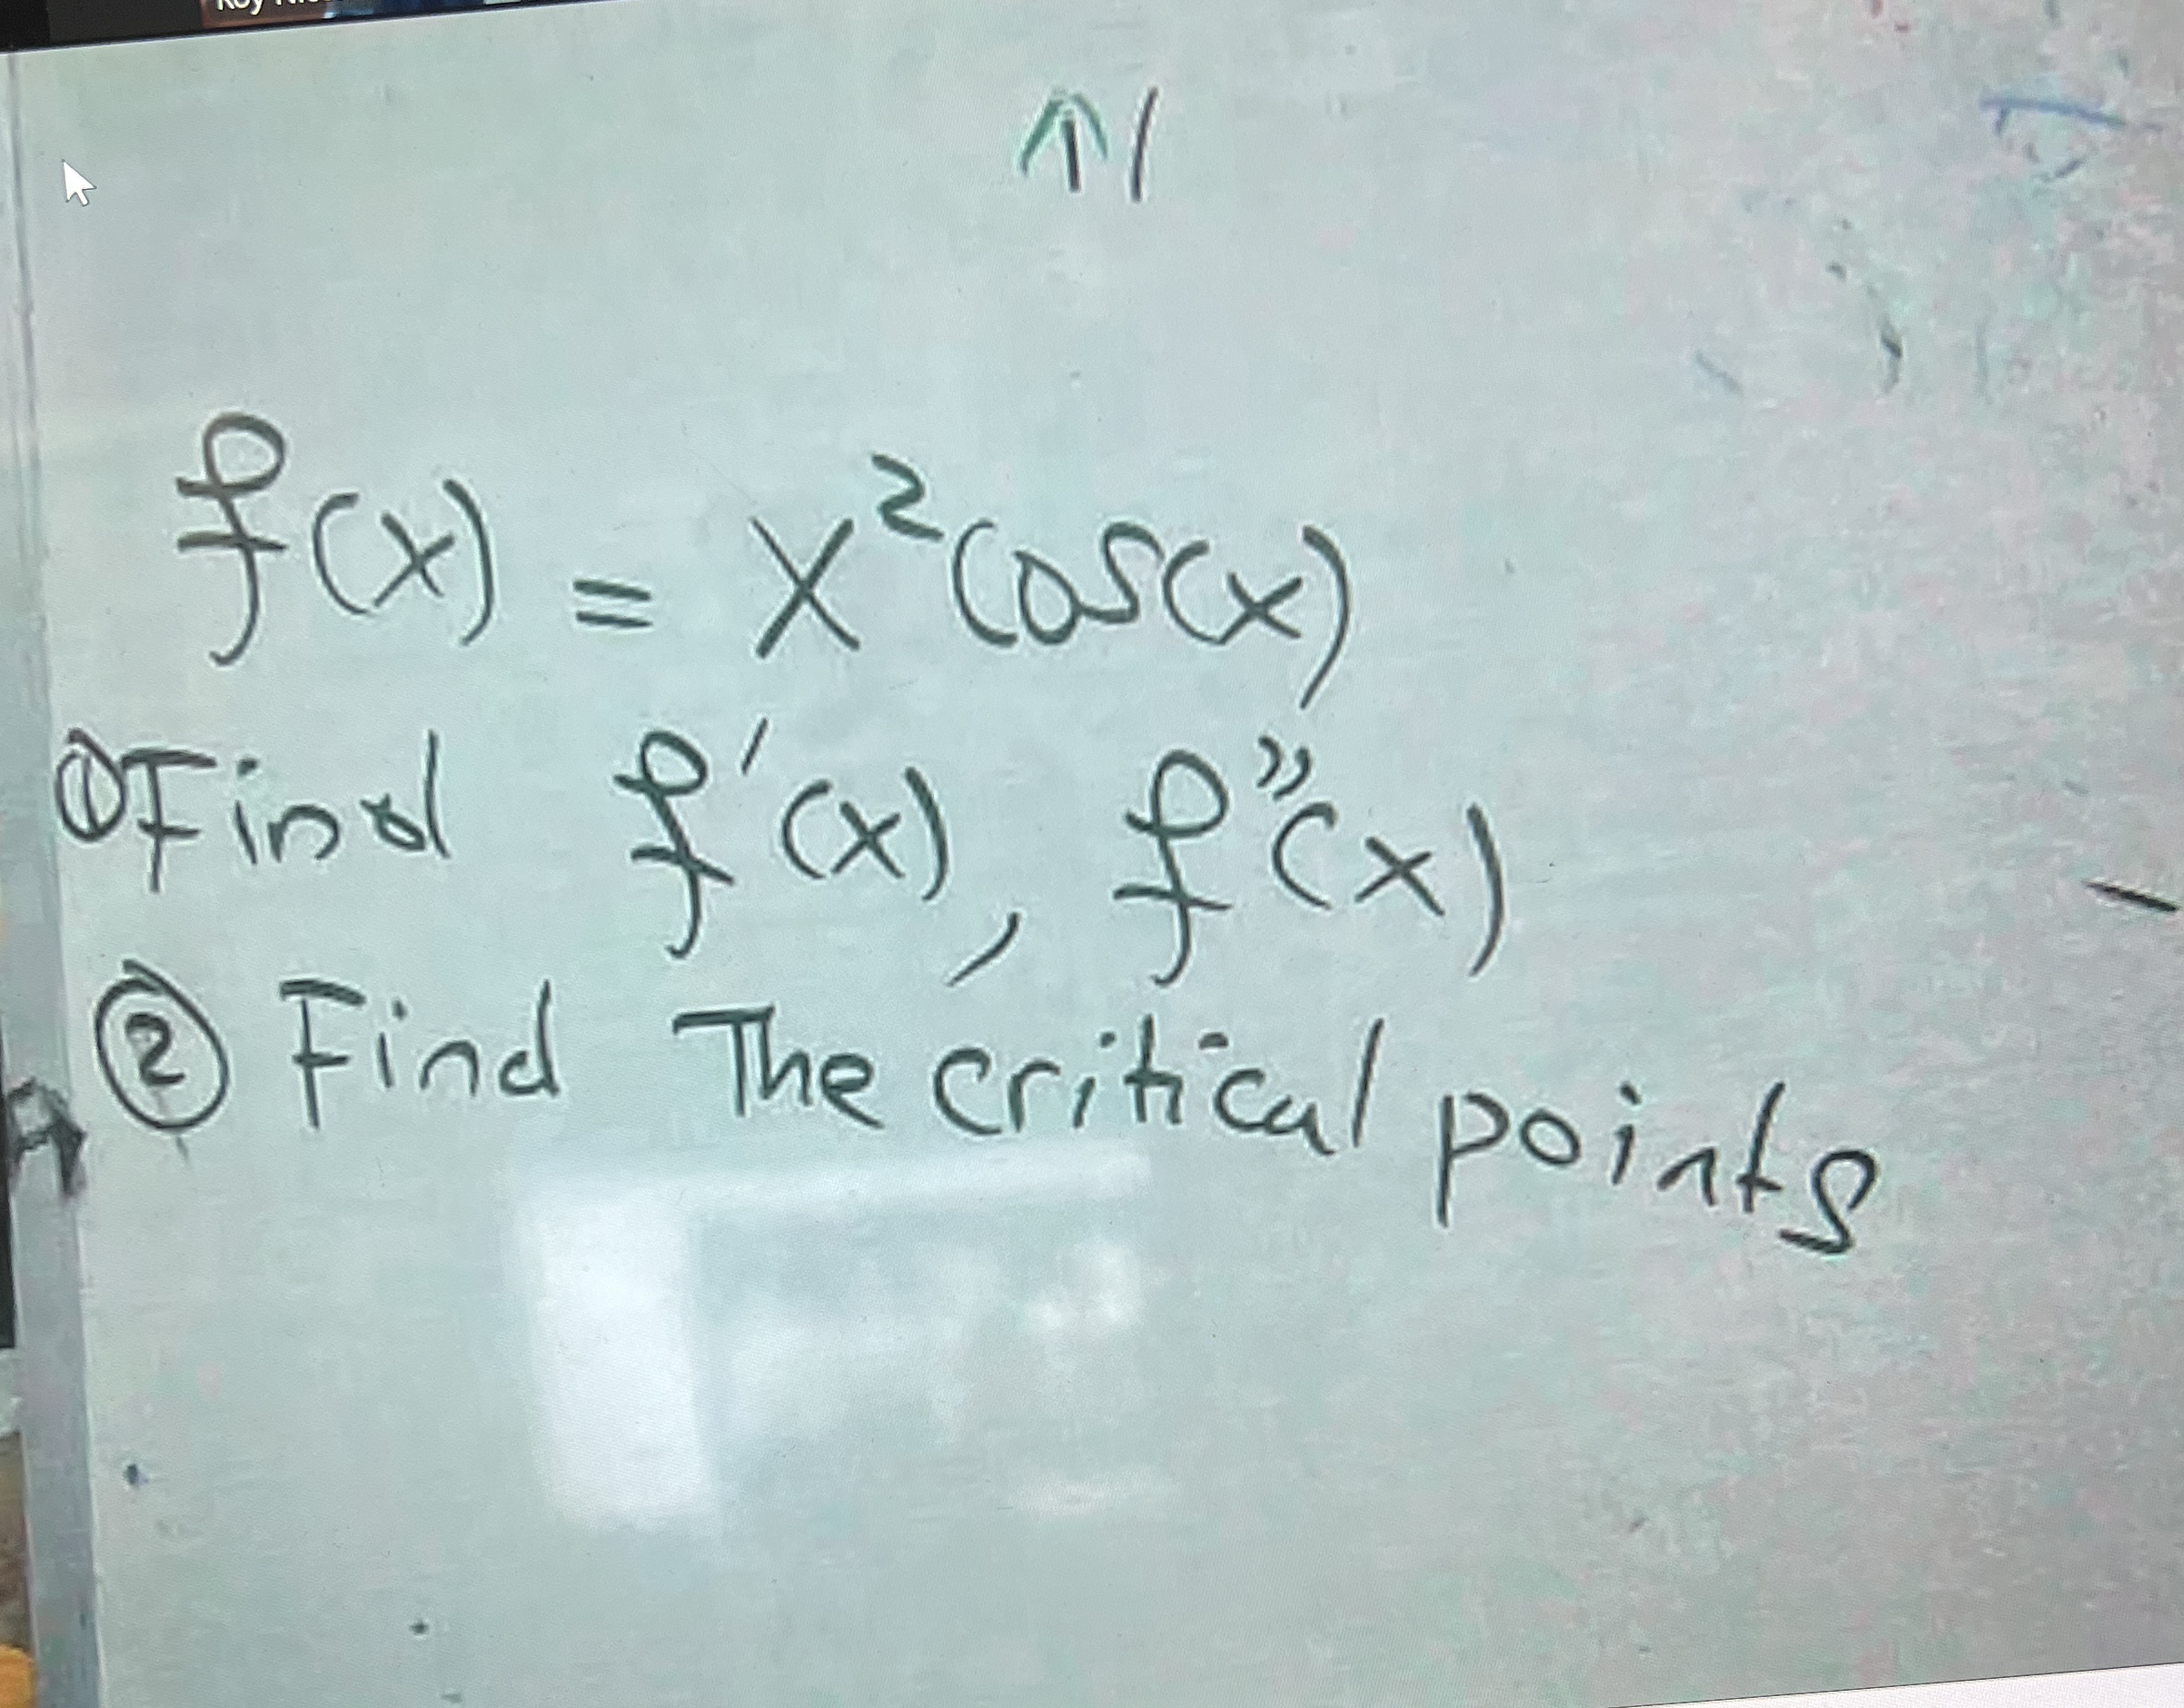 f(x) = x²cos(x)
① Find f'(x), f''(x)
② Find The critical points